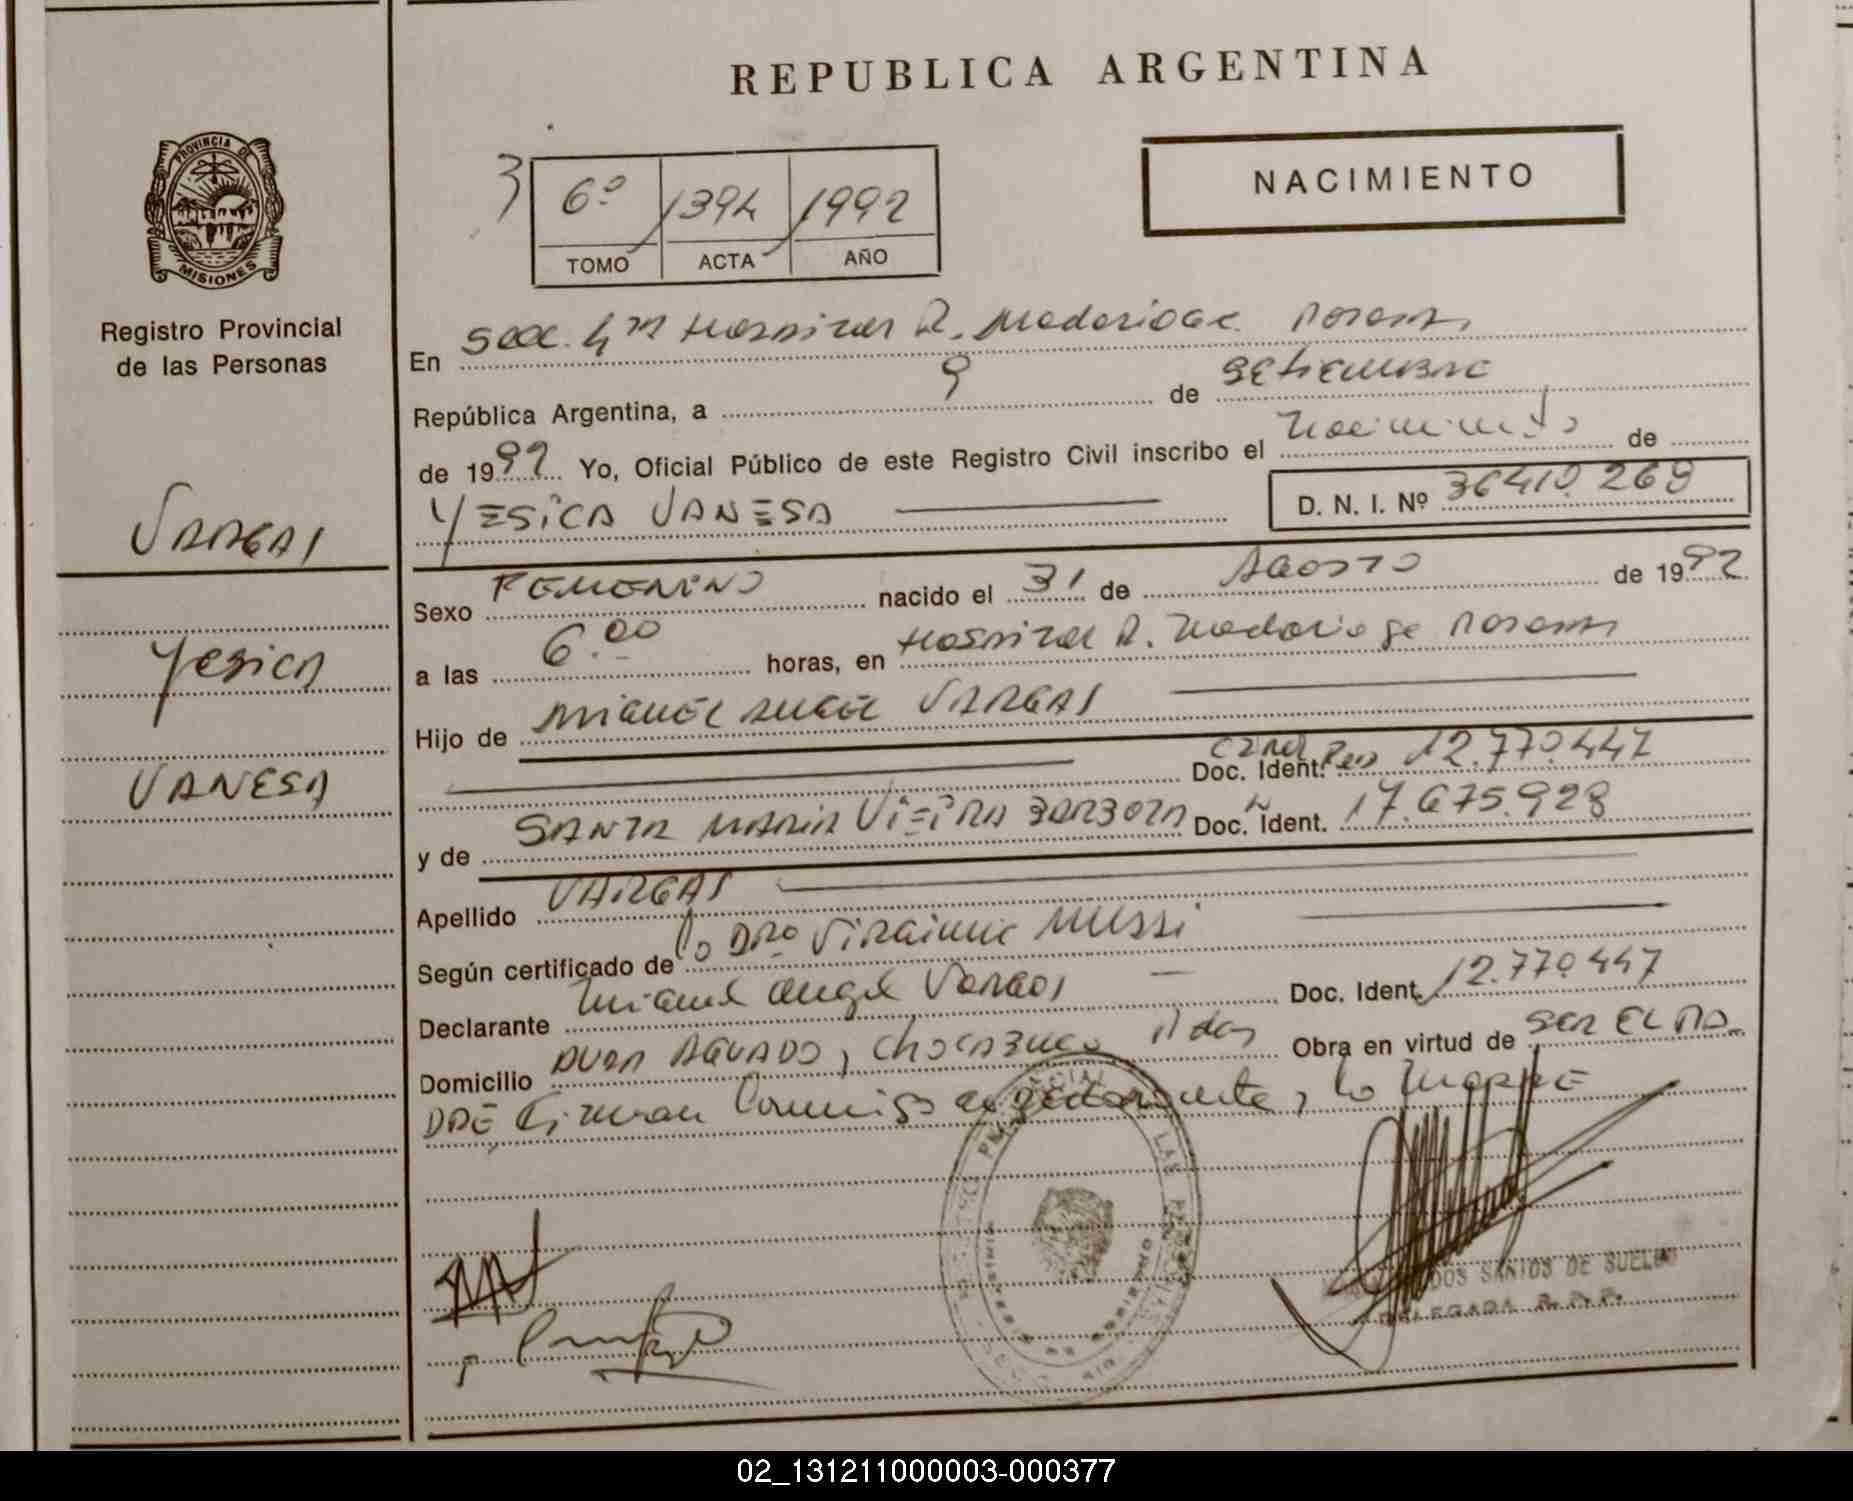 REPUBLICA ARGENTINA
NACIMIENTO
PROVINCIA DE
MISIONES
Registro Provincial
de las Personas
3
6º 1394 1992
TOMO ACTA AÑO
En Secc. 4ta Hospital R. Madariaga Posadas
República Argentina, a 9 de setiembre
de 1992 Yo, Oficial Público de este Registro Civil inscribo el Nacimiento de
YESICA VANESA D. N. I. Nº 36410.269
VARGAS
YESICA
VANESA
Sexo FEMENINO nacido el 31 de AGOSTO de 1992
a las 6.00 horas, en Hospital R. Madariaga Posadas
Hijo de MIGUEL ANGEL VARGAS
Doc. Ident. 12.770.447
y de SANTA MARIA VIEIRA BARBOZA Doc. Ident. 17.675.928
Apellido VARGAS
Según certificado de la Dra Virginia Mussi
Declarante Miguel Angel Vargas Doc. Ident. 12.770.447
Domicilio AVDA AGUADO, Chacabuco Pdas Obra en virtud de SER EL PA
DRE Firman Conmigo el declarante, la MADRE
DOS SANTOS DE SUELDO
DELEGADA R.P.P.
02_131211000003-000377